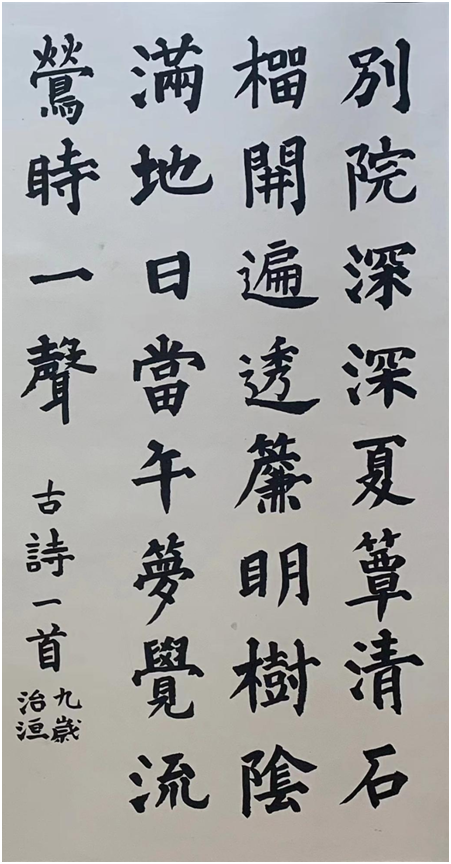 別院深深夏簟清石
榴開遍透簾明樹陰
滿地日當午夢覺流
鶯時一聲
古詩一首
九歲
治洹